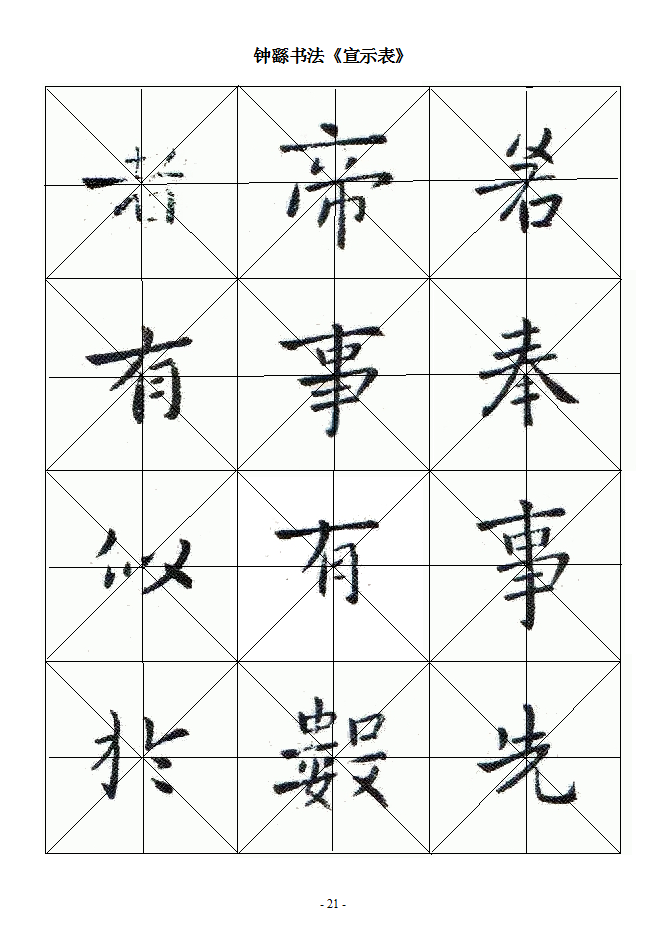 钟繇书法《宣示表》
若奉事先
帝事有數
者有似於
- 21 -